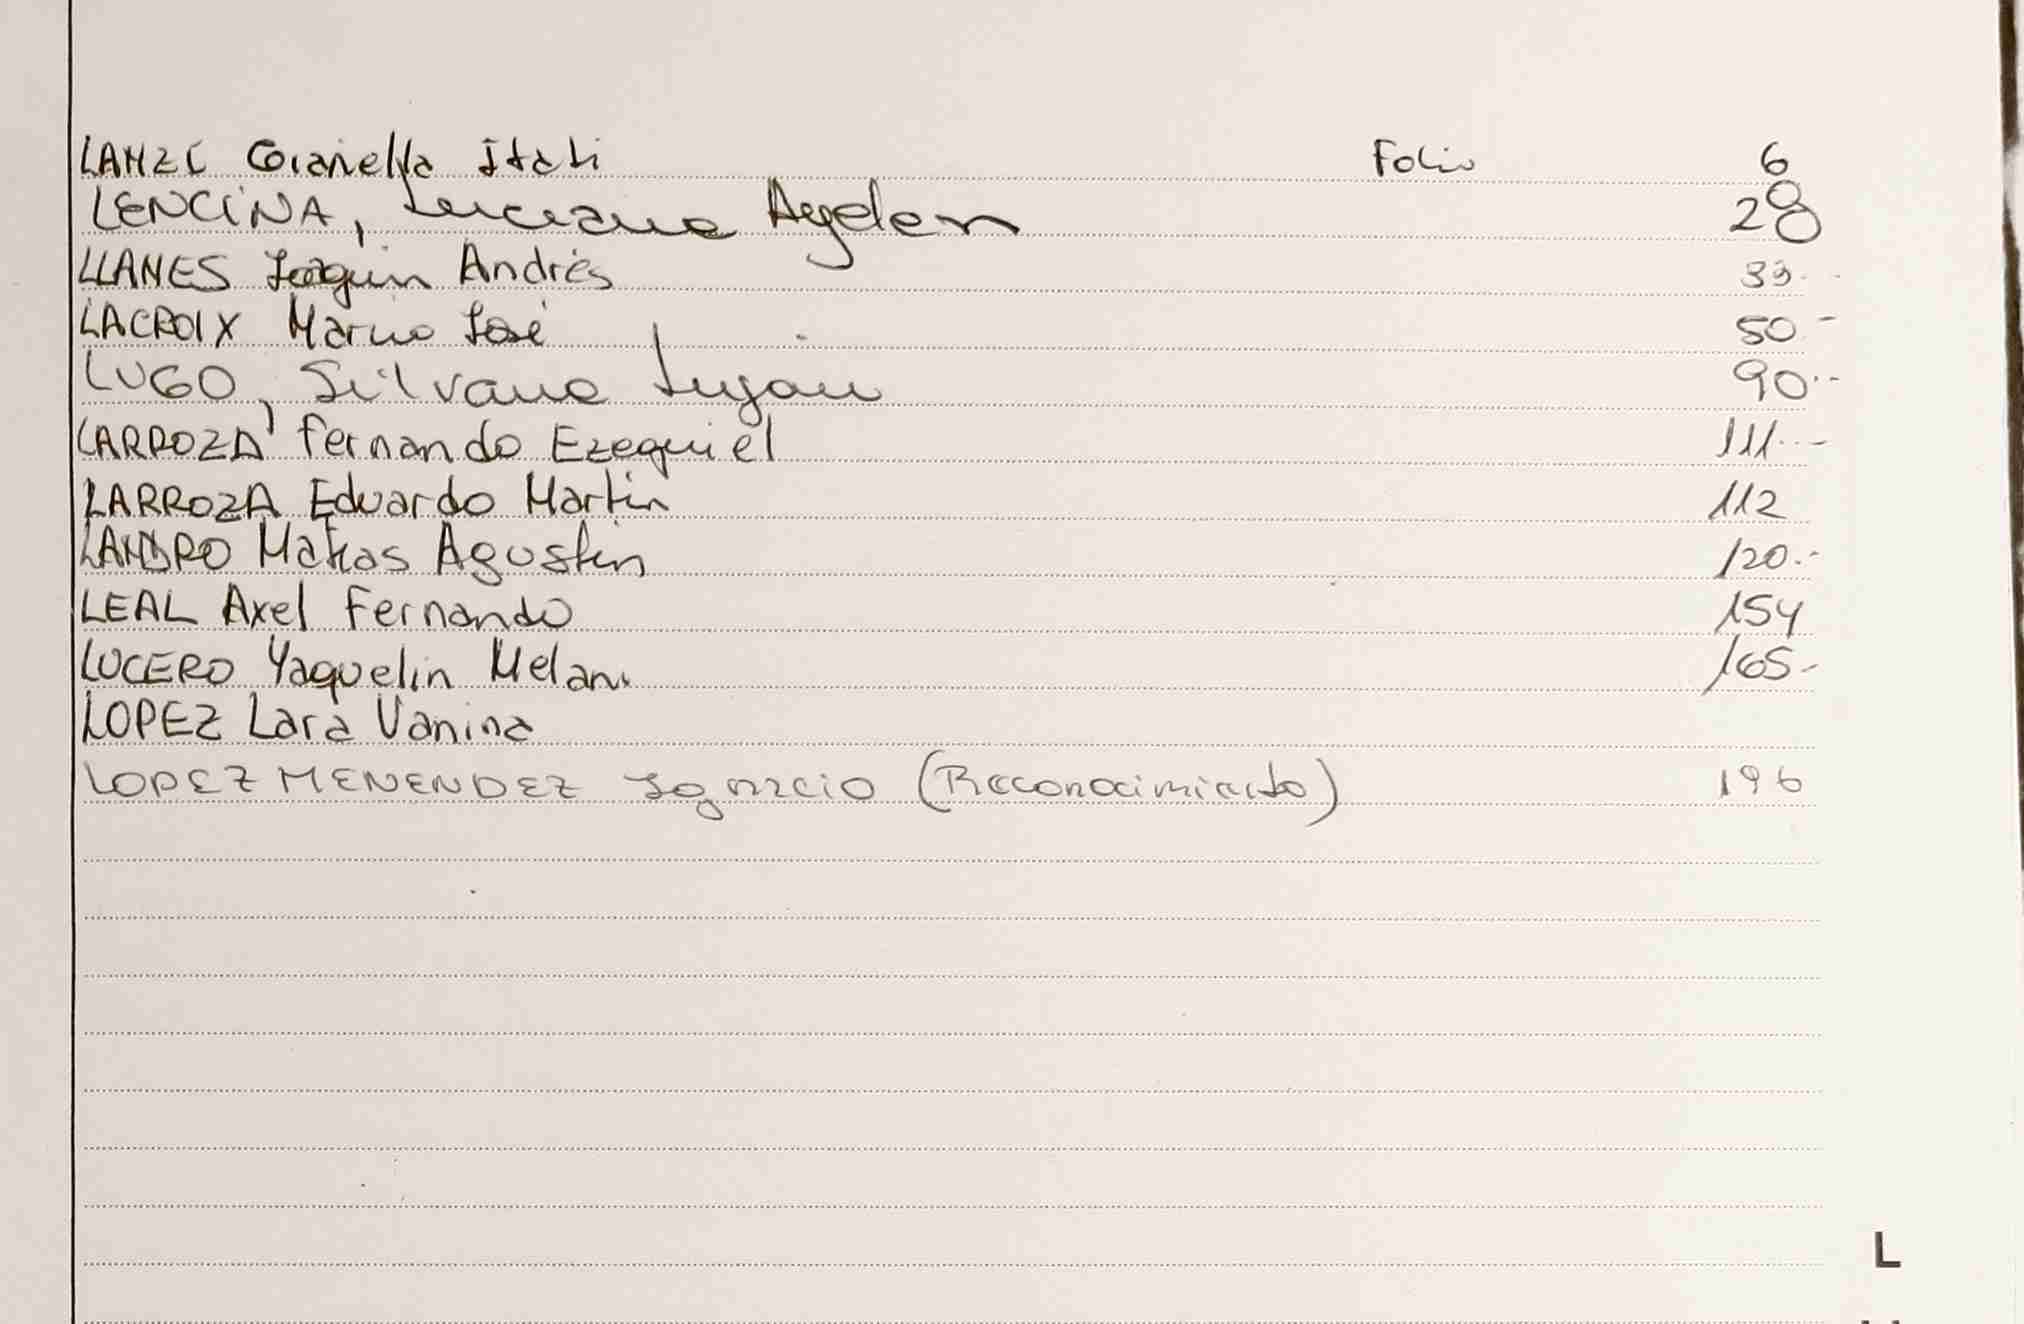 LANZI Gianella Itati Folio 6
LENCINA, Luciana Ayelen 28
LLANES Joaquin Andrés 39
LACROIX Marcio José 50
LUGO, Silvana Lujan 90
LARROZA Fernando Ezequiel 111
LARROZA Eduardo Martin 112
LANDRO Matias Agustin 120
LEAL Axel Fernando 154
LUCERO Yaquelin Melani 165
LOPEZ Lara Vanina
LOPEZ MENENDEZ Ignacio (Reconocimiento) 196
L